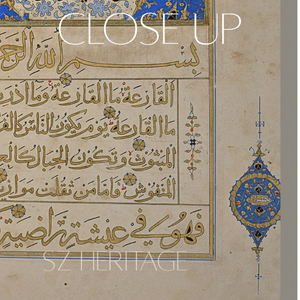 CLOSE UP
بسم الله الرحمن
القارعة ما القارعة وما ادر
ما القارعة يوم يكون الناس كالفر
المبثوث وتكون الجبال كالع
المنفوش فاما من ثقلت موازين
فهو في عيشة راضية
SZ HERITAGE